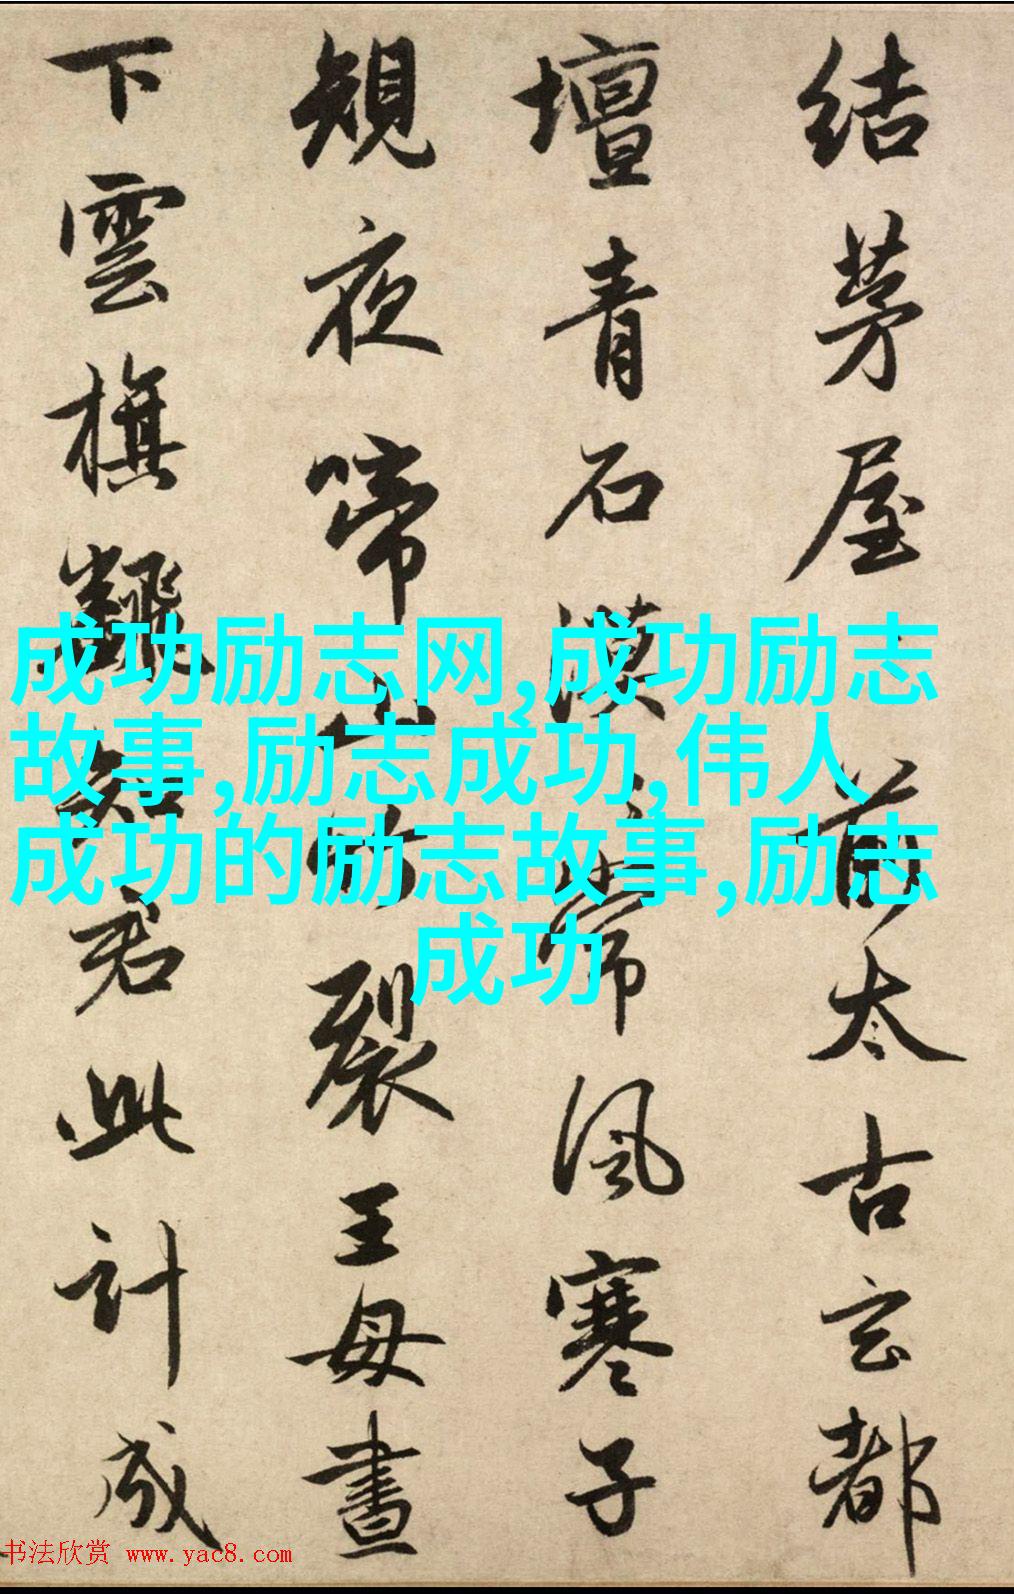 结茅屋々前太古玄都
壇青石漠々常風寒子
規夜啼山竹裂王母晝
下雲旗飜知君此計成
成功励志网,成功励志
故事,励志成功,伟人
成功的励志故事,励志
成功
书法欣赏 www.yac8.com